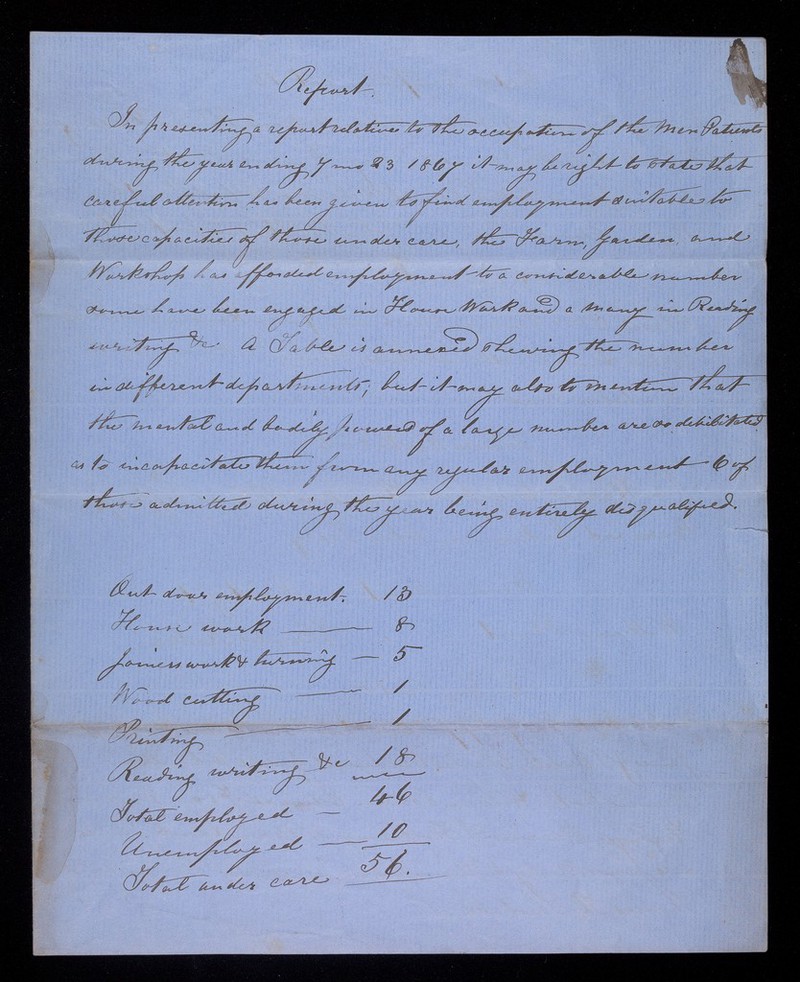 Report.
In presenting a report relative to the occupation of the Men Patients
during the year ending 7 mo 23 1867 it may be right to state that
careful attention has been given to find employment suitable to
those capacities of those under care, the Farm, Garden, and
Workshop has afforded employment to a considerable number
some have been engaged in House Work and a many in Reading
writing &c A Table is annexed shewing the number
in different departments; but it may also to mention that
the mental and bodily powers of a large number are so debilitated
as to incapacitate them from any regular employment 6 of
those admitted during the year being entirely disqualified.
Out door employment. 13
House work — 8
Joiners work & turning — 5
Wood cutting — 1
Printing — 1
Reading writing &c 18
Total employed — 46
Unemployed — 10
Total under care 56.